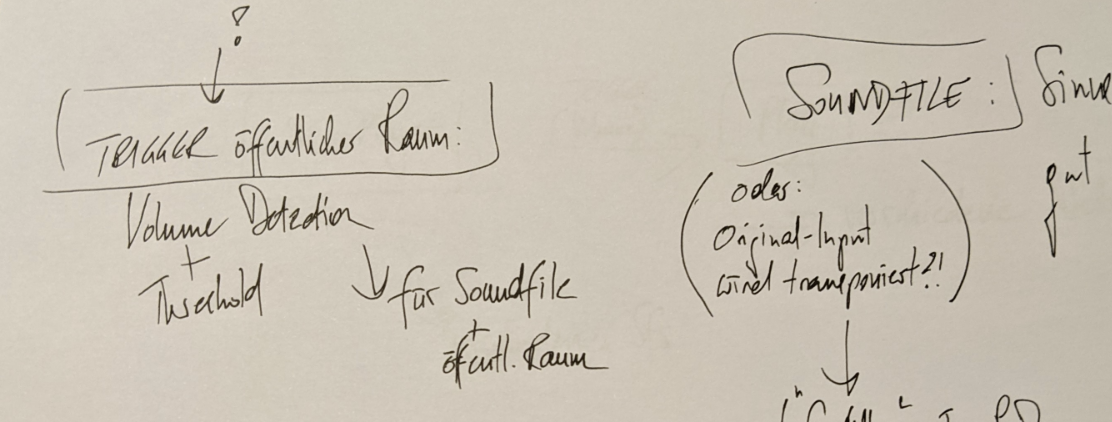 ?
TRIGGER öffentlicher Raum:
Volume Detection
+
Threshold
für Soundfile
+
öffentl. Raum
SOUNDFILE:
oder:
Original-Input
wird transponiert?!
gut